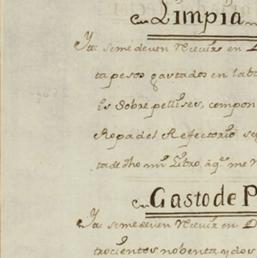 en Limpia
Yttn se me deven Recivir en D
ta pesos gastados en lab
Es Sobrepellises, compon
Ropa del Refectorio se
ta de dho mi Libro, aqe me R
en Gasto de P
Yttn se me deven Recivir en D
trocientos nobenta y dos